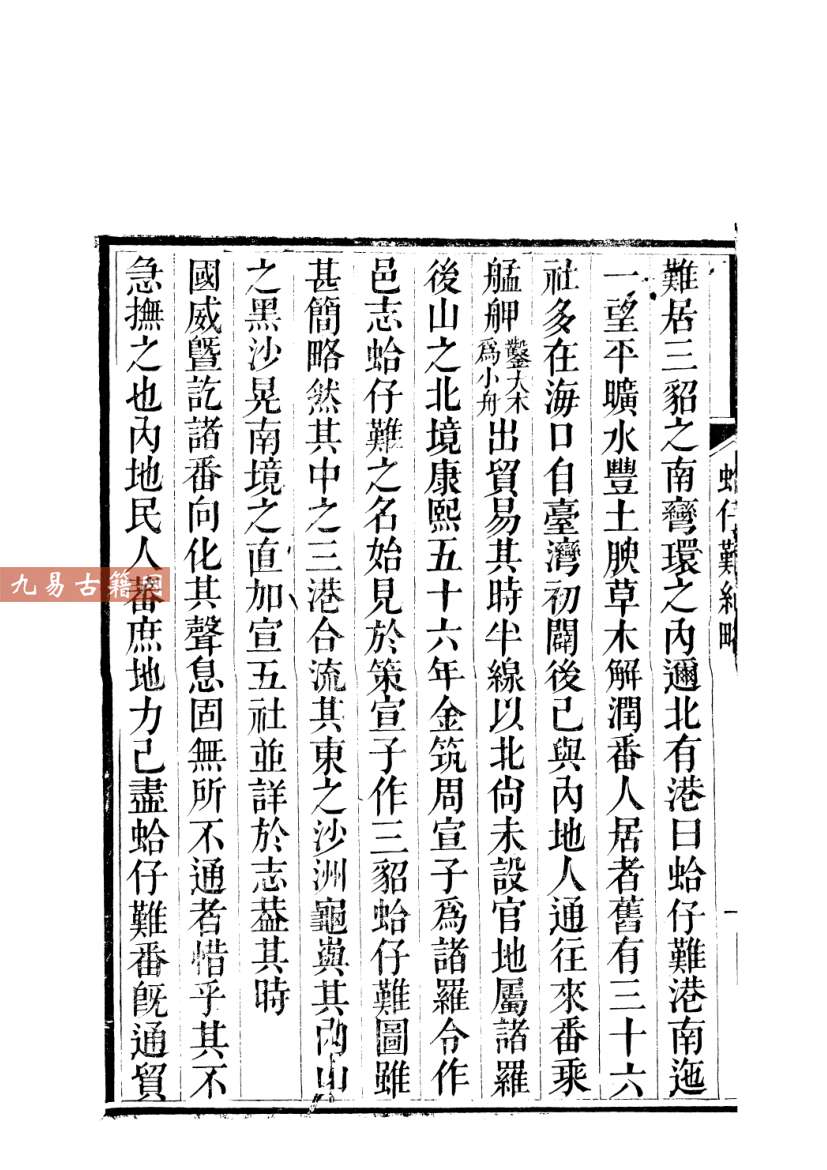 難居三貂之南彎環之內邇北有港曰蛤仔難港南迤
一望平曠水豐土腴草木解潤番人居者舊有三十六
社多在海口自臺灣初闢後已與內地人通往來番乘
艋舺鑿大木爲小舟出貿易其時半線以北尚未設官地屬諸羅
後山之北境康熙五十六年金筑周宣子爲諸羅令作
邑志蛤仔難之名始見於策宣子作三貂蛤仔難圖雖
甚簡略然其中之三港合流其東之沙洲龜嶼其西山
之黑沙晃南境之直加宣五社並詳於志葢其時
國威曁訖諸番向化其聲息固無所不通者惜乎其不
急撫之也內地民人蕃庶地力已盡蛤仔難番旣通貿
蛤仔難紀略
一
九易古籍网